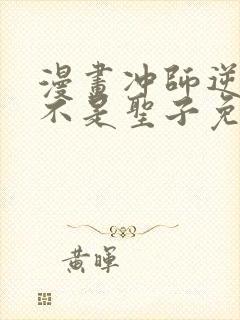 漫畫冲師逆
不是聖子免
黃暉